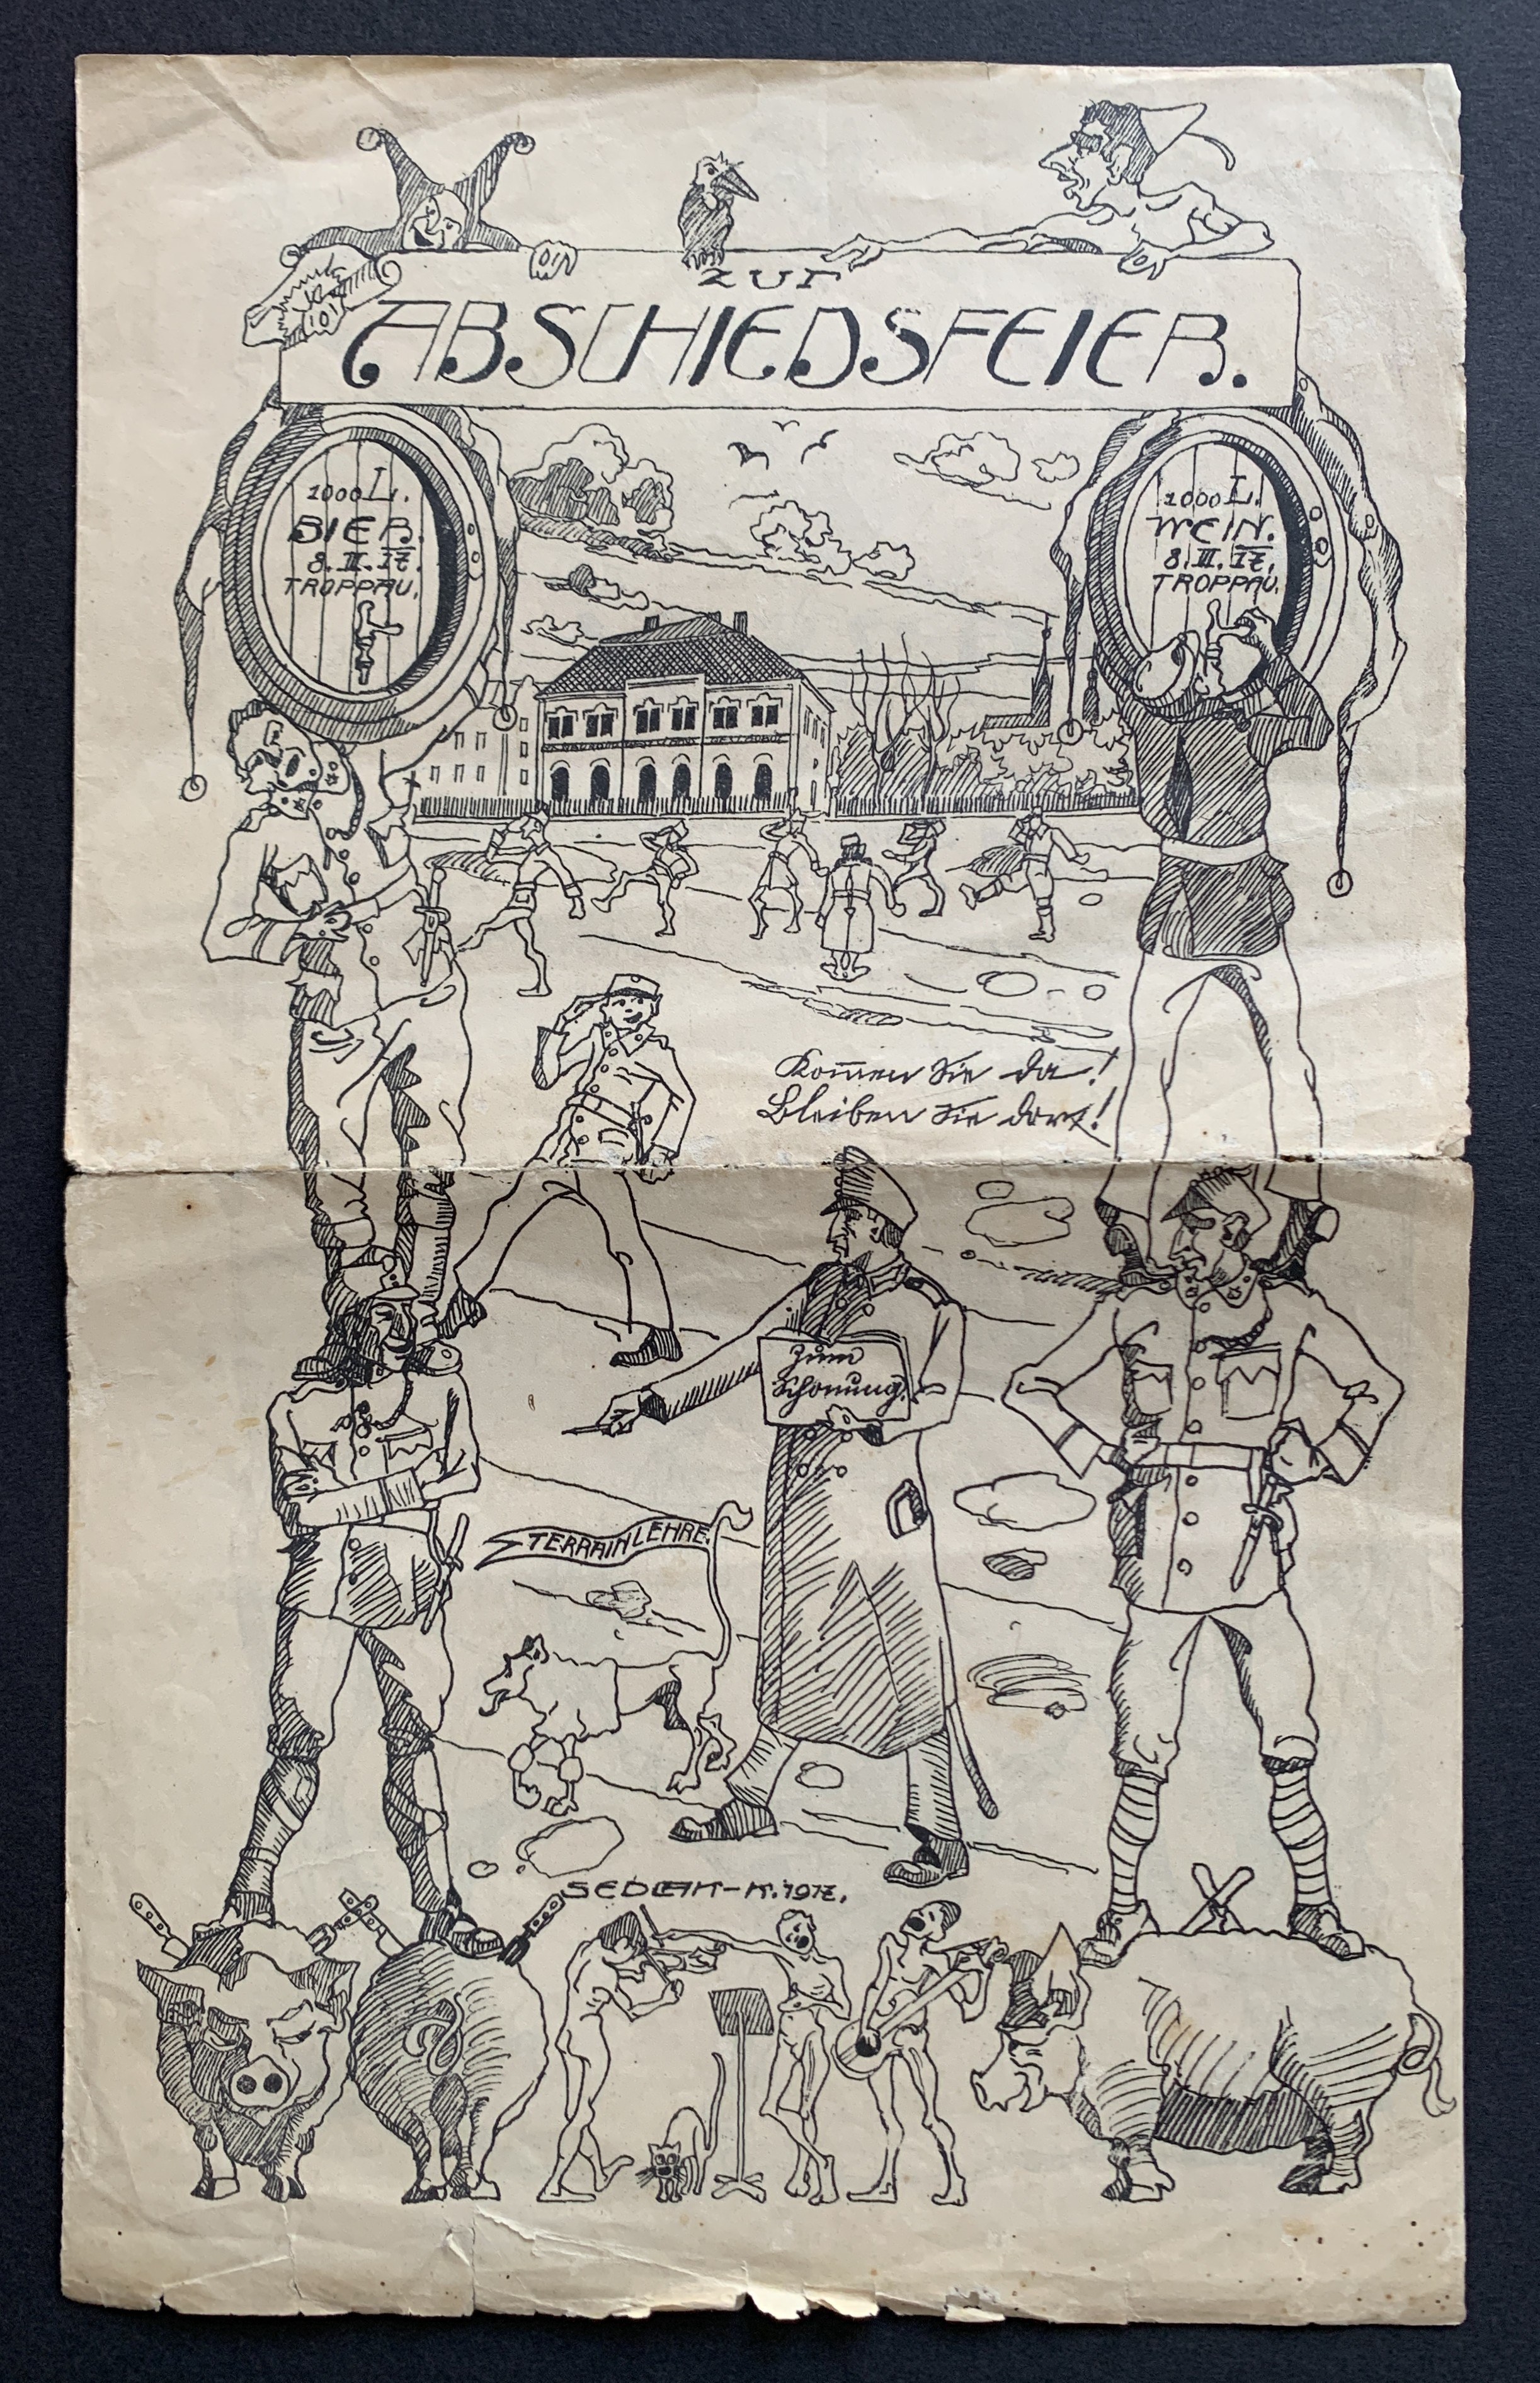 ZUR
ABSCHIEDSFEIER.
1000 L.
BIER.
8. III. 17.
TROPPAU.
1000 L.
WEIN.
8. III. 17.
TROPPAU.
Kom̅en Sie da!
Bleiben Sie dort!
Zum
Schonung.
TERRAINLEHRE.
SEDLAK-K. 1917.